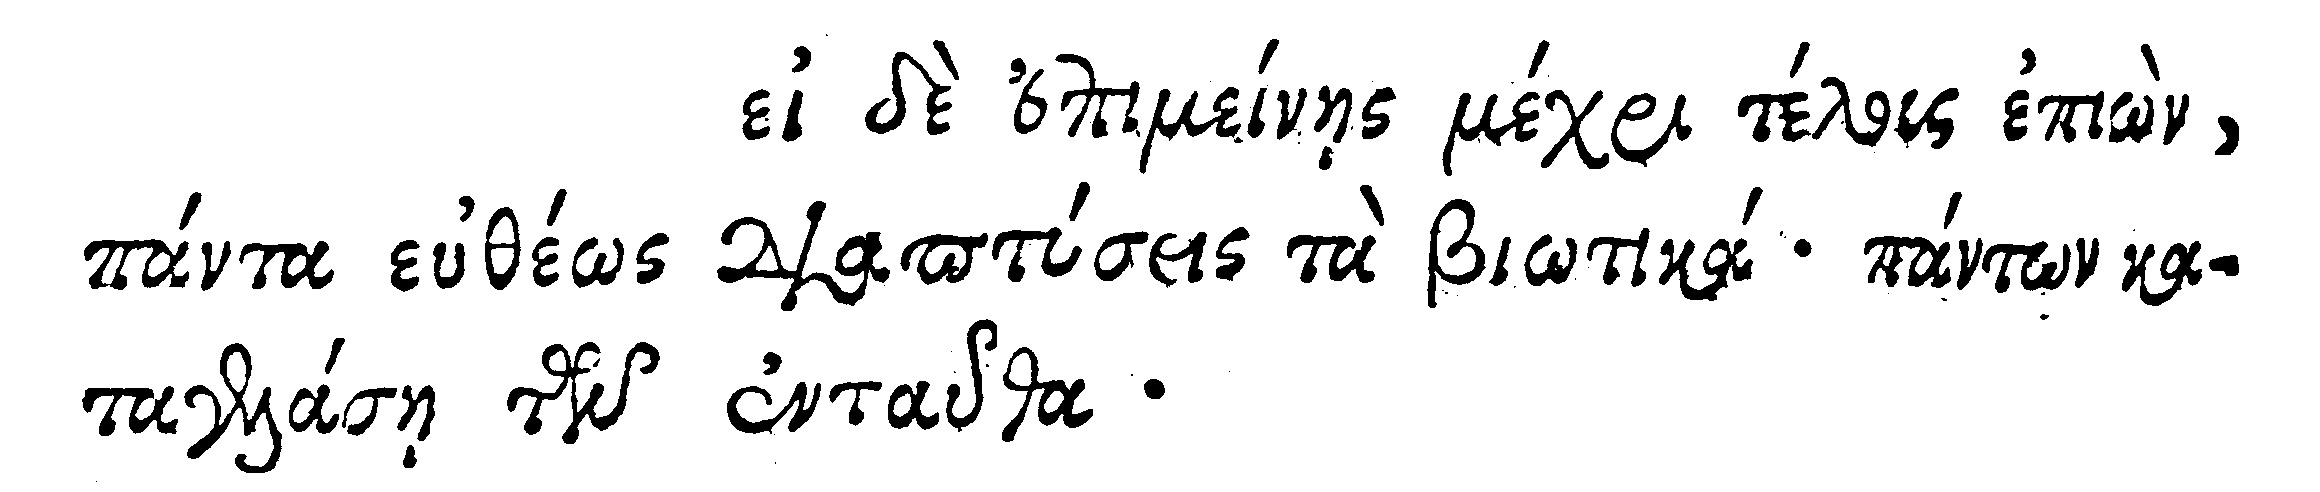 εἰ δὲ ἐπιμείνῃς μέχρι τέλους ἐπιὼν,
πάντα εὐθέως διαπτύσεις τὰ βιωτικά· πάντων κα-
ταγελάσῃ τῶν ἐνταῦθα·